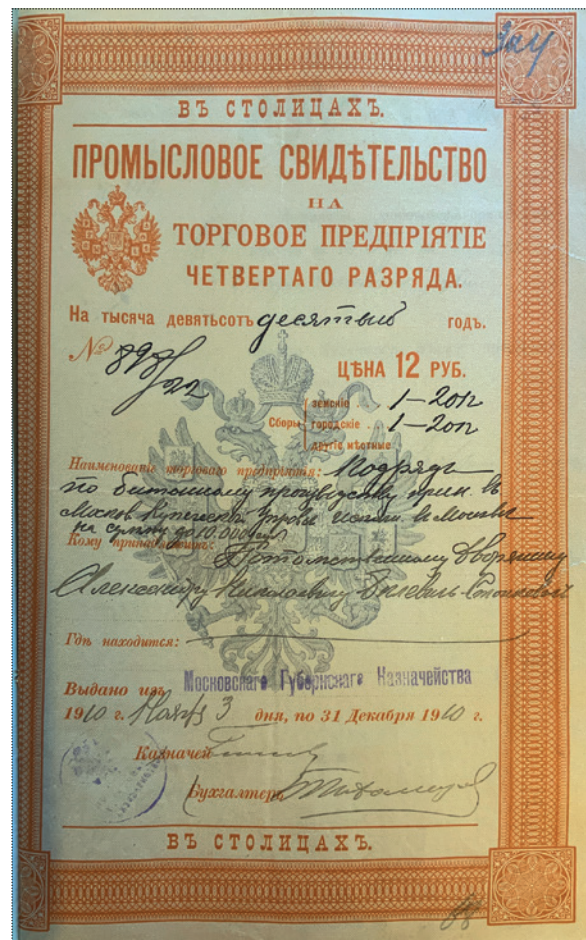 ВЪ СТОЛИЦАХЪ.
ПРОМЫСЛОВОЕ СВИДѢТЕЛЬСТВО
НА
ТОРГОВОЕ ПРЕДПРІЯТІЕ
ЧЕТВЕРТАГО РАЗРЯДА.
На тысяча девятьсотъ десятый годъ.
№
ЦѢНА 12 РУБ.
земскіе . 1-20
Сборы городскіе . 1-20
другіе мѣстные
Наименованіе торговаго предпріятія: Подрядъ
по бетонному производству прин. въ
Москов Купеческой Управѣ исполн. въ Москвѣ
на сумму до 10.000 руб
Кому принадлежитъ: Потомственному Дворянину
Александру Николаевичу
Гдѣ находится:
Выдано изъ Московскаго Губернскаго Казначейства
1910 г. Ноябр 3 дня, по 31 Декабря 1910 г.
Казначей
Бухгалтеръ
ВЪ СТОЛИЦАХЪ.